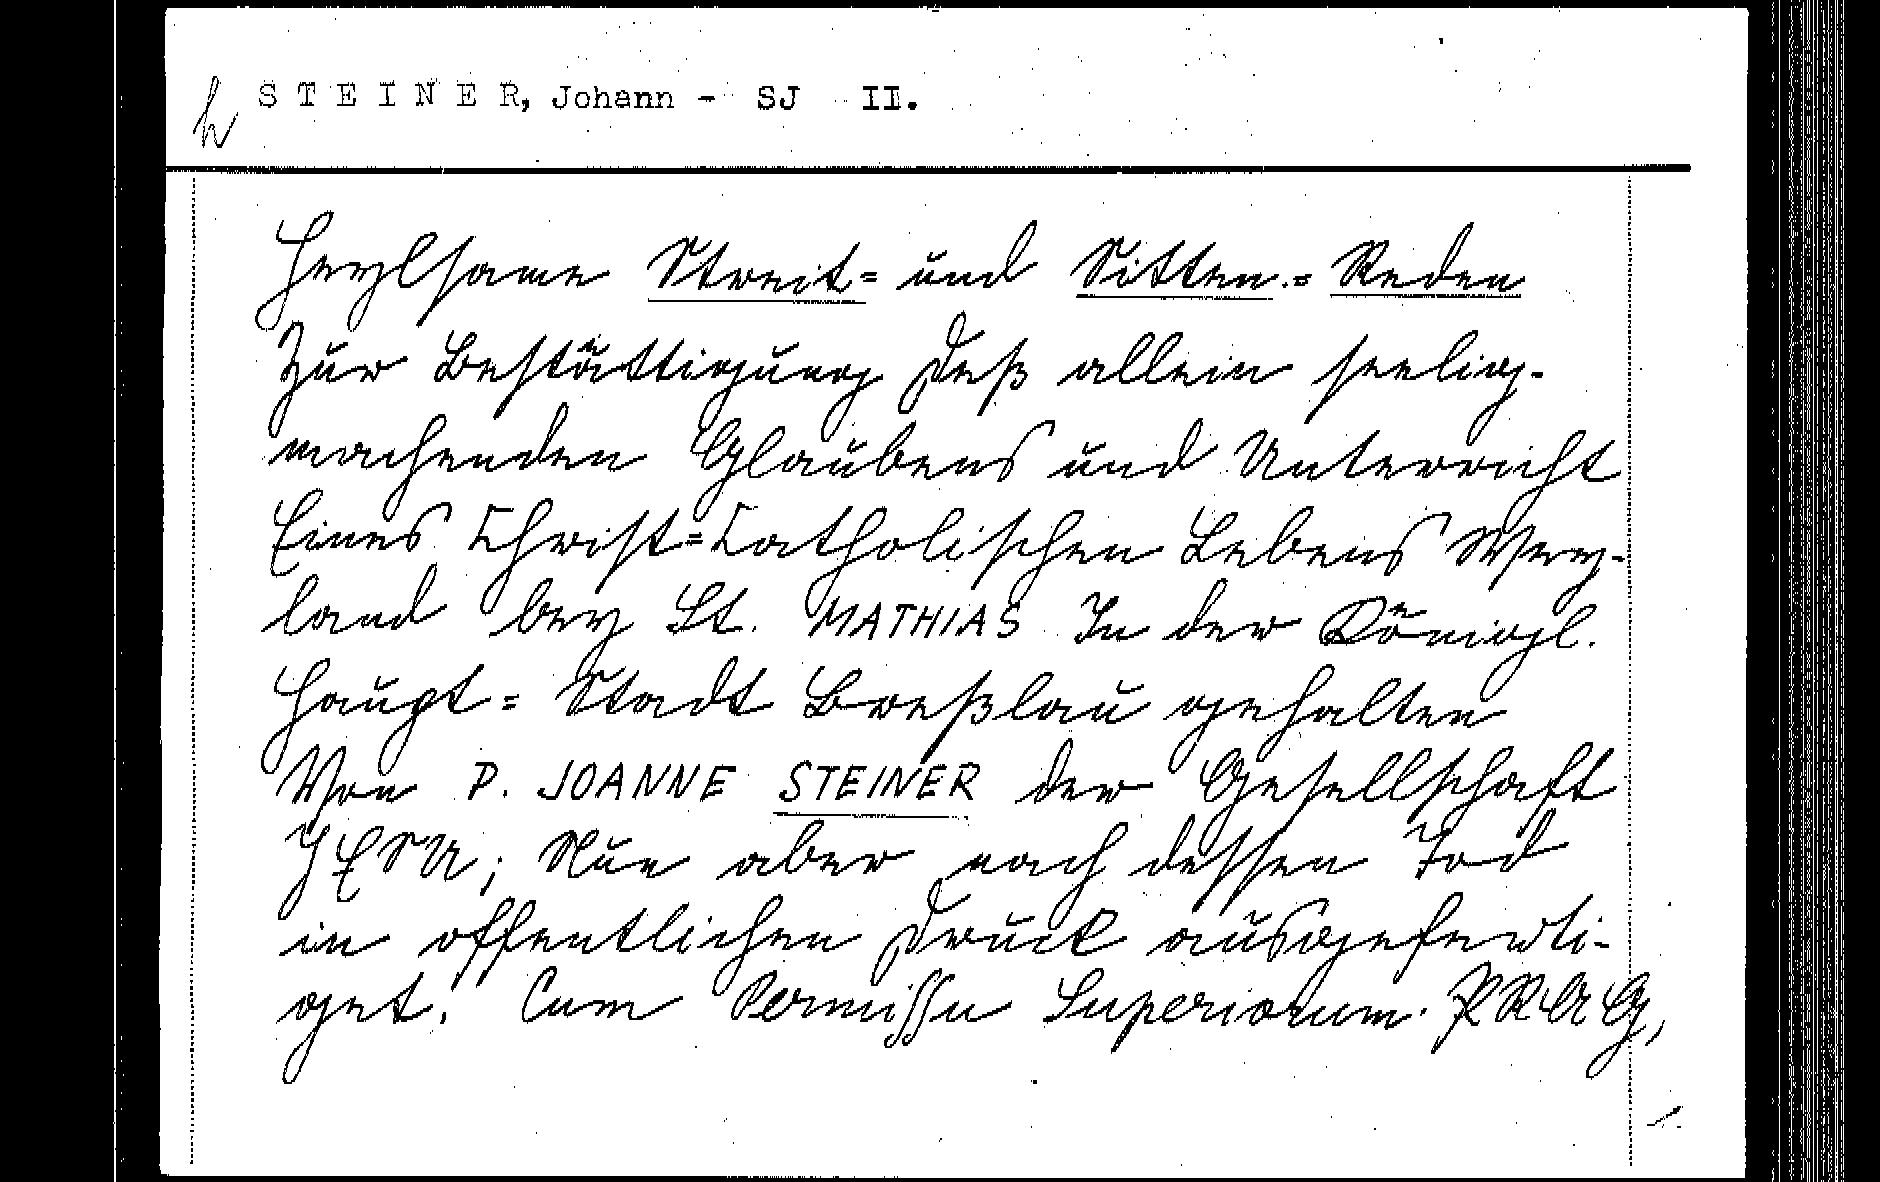 h STEINER, Johann - SJ II.
Heylsame Streit= und Sitten.= Reden
Zur Bestättigung deß allein seelig-
machenden Glaubens und Unterricht
Eines Christ=Catholischen Lebens Wey-
land bey St. MATHIAS In der Königl.
Haupt= Stadt Breßlau gehalten
Von P. JOANNE STEINER der Gesellschaft
JESU; Nun aber nach dessen Tod
in offentlichen Druck ausgeferti-
get. Cum Permissu Superiorum. PRAG,